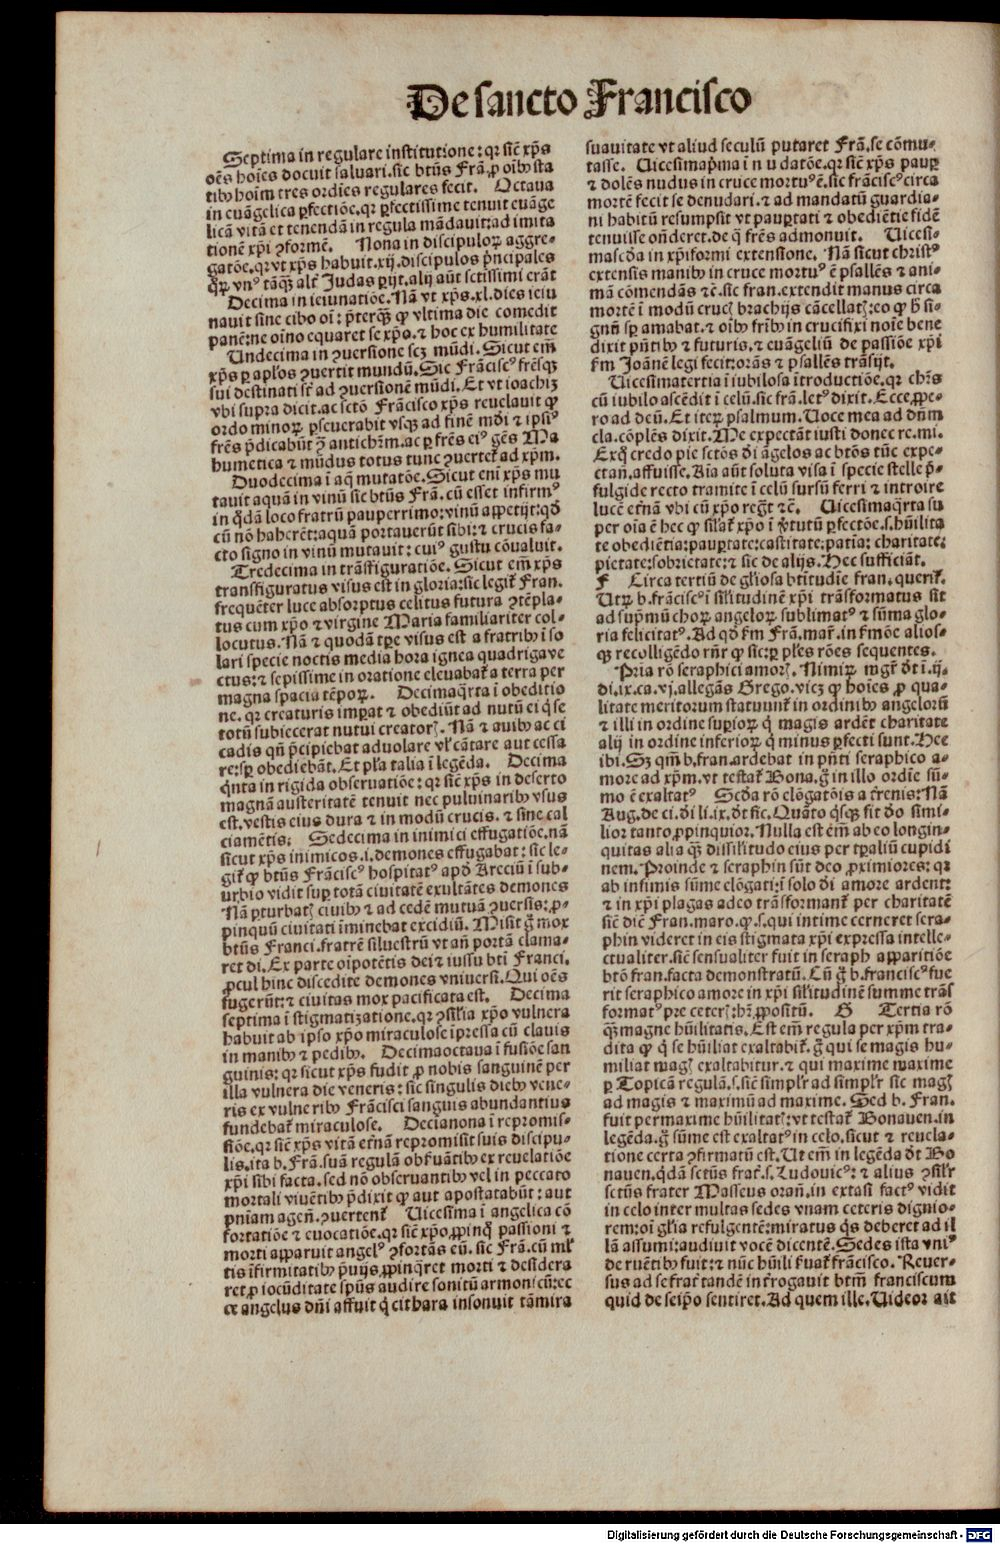 De sancto Francisco
Septima in regulare institutione: qr sic̄ xp̄s
oēs hoīes docuit saluari. sic btūs Frā. ꝓ oībꝰ sta
tibꝰ hoīm tres ordīes regulares fecit. Octaua
in euāgelica ꝑfectiōe. qr ꝑfectissime tenuit euāge
licā vitā et tenendā in regula mādauit: ad imita
tionē xp̄i ꝯformē. Nona in discipuloꝝ aggre-
gatōe. qr vt xp̄s habuit .xij. discipulos p̄ncipales
qͦꝝ vnꝰ tāqꝫ alt̄ Judas ꝑijt. alij aūt sctissimi erāt
Decima in ieiunatiōe. Nā vt xp̄s .xl. dies ieiu
nauit sine cibo oī: p̄terqꝫ ꝙ vltima die comedit
panē: ne oīno equaret se xp̄o. ⁊ hoc ex humilitate
Undecima in ꝯuersione scꝫ mūdi. Sicut em̄
xp̄s ꝑ aplos ꝯuertit mundū. Sic Frāciscꝰ fr̄esqꝫ
sui destinati st̄ ad ꝯuersionē mūdi. Et vt ioachiꝫ
vbi supra dicit. ac sctō Frācisco xp̄s reuelauit ꝙ
ordo minoꝝ ꝑseuerabit vsqꝫ ad finē mdi ⁊ ipsiꝰ
fr̄es p̄dicabūt ꝯ̄ antichr̄m. ac ꝑ fr̄es eiꝰ gēs Ma
humetica ⁊ mūdus totus tunc ꝯuertet̄ ad xp̄m.
Duodecima ī aq̄ mutatōe. Sicut eni xp̄s mu
tauit aquā in vinū sic btūs Frā. cū esset infirmꝰ
in qͦdā loco fratrū pauperrimo: vinū appetijt: qd̄
cū nō haberēt: aquā portauerūt sibi: ⁊ crucis fa-
cto signo in vinū mutauit: cuiꝰ gustu cōualuit.
Tredecima in trāsfiguratiōe. Sicut em̄ xp̄s
transfiguratus visus est in gloria: sic legit̄ Fran.
frequēter luce absorptus celitus futura ꝯtēpla-
tus cum xp̄o ⁊ virgine Maria familiariter col-
locutus. Nā ⁊ quodā tp̄e visus est a fratribꝰ ī so
lari specie noctis media hora ignea quadriga ve
ctus: ⁊ sepissime in oratione eleuabat̄ a terra per
magna spacia tēpoꝝ. Decimaq̄rta ī obeditio
ne. qr creaturis imꝑat ⁊ obediūt ad nutū ei qͥ se
totū subiecerat nutui creatorꝭ. Nā ⁊ auibꝰ ac ci
cadis qn̄ p̄cipiebat aduolare vl̄ cātare aut cessa
re: sꝑ obediebāt. Et pl̄a talia ī legēda. Decima
qͥnta in rigida obseruatiōe: qr sic̄ xp̄s in deserto
magnā austeritatē tenuit nec puluinaribꝰ vsus
est. vestis eius dura ⁊ in modū crucis. ⁊ sine cal
ciamētis: Sedecima in inimici effugatiōe. nā
sicut xp̄s inimicos .i. demones effugabat: sic le-
git̄ ꝙ btūs Frāciscꝰ hospitatꝰ apd̄ Areciū ī sub-
urbio vidit suꝑ totā ciuitatē exultātes demones
Nā ꝑturbatꝭ ciuibꝰ ⁊ ad cedē mutuā ꝯuersis: ꝓ-
pinquū ciuitati īminebat excidiū. Misit gͦ mox
btūs Franci. fratrē siluestrū vt an̄ portā clama-
ret di. Ex parte oīpotētis dei ⁊ iussu bti Franci.
ꝓcul hinc discedite demones vniuersi. Qui oēs
fugerūt: ⁊ ciuitas mox pacificata est. Decima
septima ī stigmatizatione. qr ꝯsilia xp̄o vulnera
habuit ab ipso xp̄o miraculose īpressa cū clauis
in manibꝰ ⁊ pedibꝰ. Decimaoctaua ī fusiōe san
guinis: qr sicut xp̄s fudit ꝓ nobis sanguinē per
illa vulnera die veneris: sic singulis diebꝰ vene-
ris ex vulneribꝰ Frācisci sanguis abundantius
fundebat̄ miraculose. Decianona ī repromis-
siōe. qr sic̄ xp̄s vitā et̄nā repromisit suis discipu-
lis. ita b. Frā. suā regulā obs̄uātibꝰ ex reuelatiōe
xp̄i sibi facta. sed nō obseruantibꝰ vel in peccato
mortali viuētibꝰ p̄dixit ꝙ aut apostatabūt: aut
pn̄iam agen̄. ꝯuertent̄ Uicesima ī angelica cō
fortatiōe ⁊ euocatiōe. qr sic̄ xp̄o ꝓpinqͣ passioni ⁊
morti apparuit angelꝰ ꝯfortās eū. sic Frā. cū ml̄
tis īfirmitatibꝰ p̄uijs ꝓpinq̄ret morti ⁊ desidera
ret ꝓ iocūditate spūs audire sonitū armonicū: ec
ce angelus dn̄i affuit qͥ cithara insonuit tā mira
suauitate vt aliud seculū putaret Frā. se cōmu-
tasse. Uicesimap̄ma ī nudatōe. qr sic̄ xp̄s pauꝑ
⁊ dolēs nudus in cruce mortuꝰ ē. sic frāciscꝰ circa
mortē fecit se denudari. ⁊ ad mandatū guardia-
ni habitū resumpsit vt pauꝑtati ⁊ obediētie fidē
tenuisse on̄deret. de qͦ fr̄es admonuit. Uicesi-
mascd̄a in xp̄iformi extensione. Nā sicut christꝰ
extensis manibꝰ in cruce mortuꝰ ē psallēs ⁊ ani-
mā cōmendās ⁊c̄. sic fran. extendit manus circa
mortē ī modū crucꝭ brachijs cācellatꝭ: eo ꝙ hͦ si-
gnū sꝑ amabat. ⁊ oībꝰ fr̄ibꝰ in crucifixi noīe bene
dixit pn̄tibꝰ ⁊ futuris. ⁊ euāgeliū de passiōe xp̄i
fm Joānē legi fecit: orās ⁊ psallēs trāsijt.
Uicesimatertia ī iubilosa ītroductiōe. qr chr̄s
cū iubilo ascēdit ī celū. sic frā. letꝰ dixit. Ecce ꝓpe-
ro ad deū. Et iteꝝ psalmum. Uoce mea ad dn̄m
cla. cōplēs dixit. Me expectāt iusti donec re. mi.
Ex qͦ credo pie sctōs dī āgelos ac btōs tūc expe-
ctan̄. affuisse. Aīa aūt soluta visa ī specie stelle p̄-
fulgide recto tramite ī celū sursū ferri ⁊ introire
lucē et̄nā vbi cū xp̄o reḡt ⁊c̄. Uicesimaq̄rta su
per oīa ē hec ꝙ silat̄ xp̄o ī v̄tutū ꝑfectōe .s. hūilita
te obediētia: pauꝑtate: castitate: patīa: charitate:
pietate: sobrietate: ⁊ sic de alijs. Hec sufficiāt.
F Circa tertiū de gl̄iosa btitudīe fran. querit̄.
Utꝝ b. frāciscꝰ ī silitudinē xp̄i trāsformatus sit
ad supͣmū choꝝ angeloꝝ sublimatꝰ ⁊ sūma glo-
ria felicitatꝰ. Ad qd̄ fm Frā. mar̄. in s̄mōe alios-
qꝫ recolligēdo rn̄r ꝙ sic: ꝑ pl̄es rōes sequentes.
Pria rō seraphici amorꝭ. Nimiꝝ mgr̄ dt̄ ī .ij.
di. ix. ca. vj. allegās Grego. vicꝫ ꝙ hoīes ꝓ qua-
litate meritorum statuunt̄ in ordinibꝰ angelorū
⁊ illi in ordine superioꝝ qͥ magis ardēt charitate
alij in ordine inferioꝝ qͥ minus ꝑfecti sunt. Hec
ibi. Sꝫ qm̄ b. fran. ardebat in pn̄ti seraphico a-
more ad xp̄m. vt testat̄ Bona. gͦ in illo ordīe sū-
mo ē exaltatꝰ Scd̄a rō elōgatōis a t̄renis: Nā
Aug. de ci. dī li. ix. dt̄ sic. Quāto qͥsqꝫ fit dō simi-
lior tanto ꝓpinquior. Nulla est em̄ ab eo longin-
quitas alia qͣꝫ dissilitudo eius per tꝑaliū cupidi
nem. Proinde ⁊ seraphin sūt deo ꝓximiores: qr
ab infimis sūme elōgati: ī solo dī amore ardent:
⁊ in xp̄i plagas adeo trāsformant̄ per charitatē
sic̄ diē Fran. maro. ꝙ .s. qui intime cerneret sera-
phin videret in eis stigmata xp̄i expressa intelle-
ctualiter. sic̄ sensualiter fuit in seraph apparitiōe
btō fran. facta demonstratū. Cū gͦ b. franciscꝰ fue
rit seraphico amore in xp̄i silitudinē summe trās
formatꝰ pre ceterꝭ: hꝫ ꝓpositū. G Tertia rō
qͣꝫ magne hūilitatis. Est em̄ regula per xp̄m tra-
dita ꝙ qͥ se hūiliat exaltabit̄. gͦ qui se magis hu-
miliat magꝭ exaltabitur. ⁊ qui maxime maxime
ꝑ Topicā regulā .s. sic̄ simplr̄ ad simplr̄ sic magꝭ
ad magis ⁊ maximū ad maxime. Sed b. Fran.
fuit permaxime hūilitatꝭ: vt testat̄ Bonauen. in
legēda. gͦ sūme est exaltatꝰ in celo. sicut ⁊ reuela-
tione certa ꝯfirmatū est. Ut em̄ in legēda dt̄ Bo
nauen. qͥdā sctūs frat̄ .s. Ludouicꝰ: ⁊ alius ꝯsilr̄
sctūs frater Masseus oran̄. in extasi factꝰ vidit
in celo inter multas sedes vnam ceteris dignio-
rem: oī gl̄ia refulgentē: miratus qͥs deberet ad il
lā assumi: audiuit vocē dicentē. Sedes ista vniꝰ
de ruētibꝰ fuit: ⁊ nūc hūili s̄uat̄ frācisco. Reuer-
sus ad se frat̄ tandē int̄rogauit btm̄ franciscum
quid de seip̄o sentiret. Ad quem ille. Uideor ait
Digitalisierung gefördert durch die Deutsche Forschungsgemeinschaft - DFG